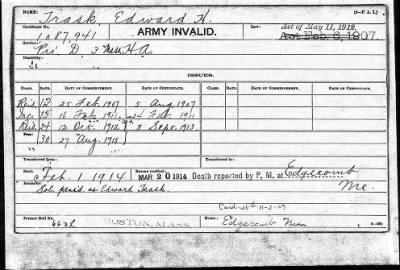 Name: Trask, Edward H. (3-P. A. I.)
Certificate No.: 1087,941 ARMY INVALID. Act of May 11, 1912.
Act Feb. 6, 1907.
Service: Pri. D, 3 Mass. H.A.
Disability:
ISSUES.
CLASS. RATE. DATE OF COMMENCEMENT. DATE OF CERTIFICATE. CLASS. RATE. DATE OF COMMENCEMENT. DATE OF CERTIFICATE.
12 25 Feb. 1907 5 Aug. 1907
Inc 15 16 Feb. 1911 24 Feb. 1911
24 12 Oct. 1912 8 Sept. 1913
30 27 Aug. 1915
Transferred from: Transferred to:
Died: Feb. 1 1914 Bureau notified: MAR 20 1914 Death reported by P. M. at Edgecomb
Me.
Sol. paid as Edward Trask.
Former Roll No. BOSTON, MASS. Home: Edgecomb